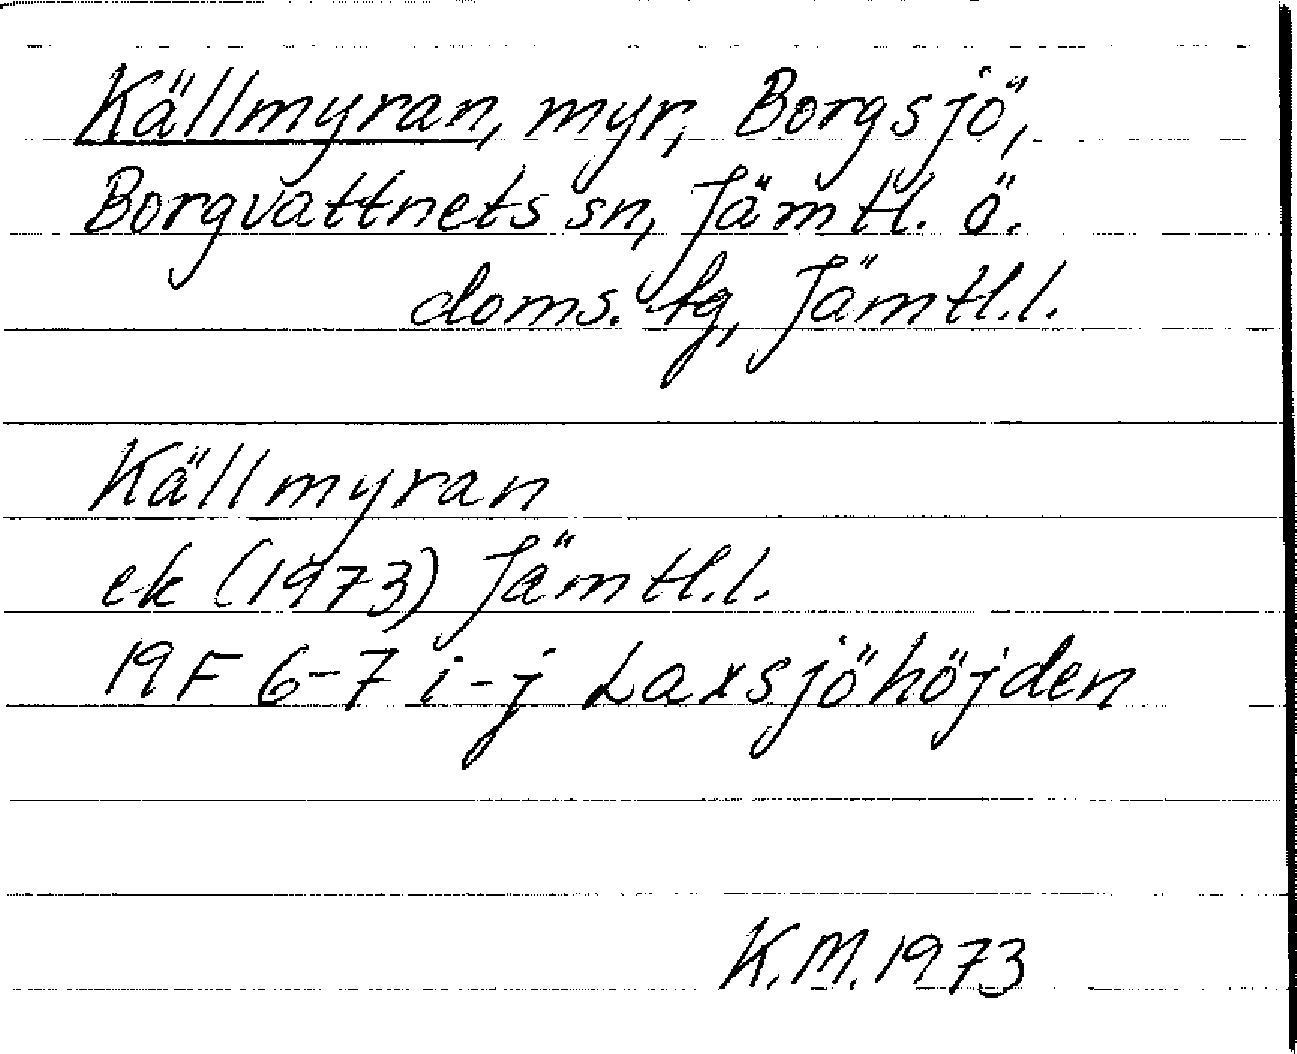 Källmyran, myr, Borgsjö,
Borgvattnets sn, Jämtl. ö.
doms. tg, Jämtl.l.
Källmyran
ek (1973) Jämtl.l.
19F 6-7 i-j Laxsjöhöjden
K.M. 1973